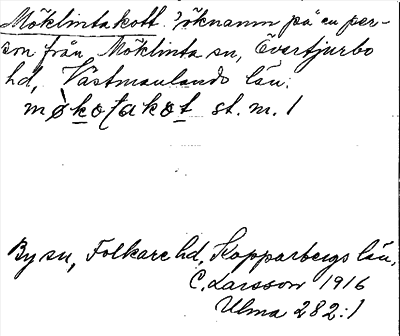 Möklintakott. öknamn på en per-
son från Möklinta sn, Övertjurbo
hd, Västmanlands län.
møkoʃakot st. m. 1
By sn, Folkare hd, Kopparbergs län,
C. Larsson 1916
Ulma 282:1